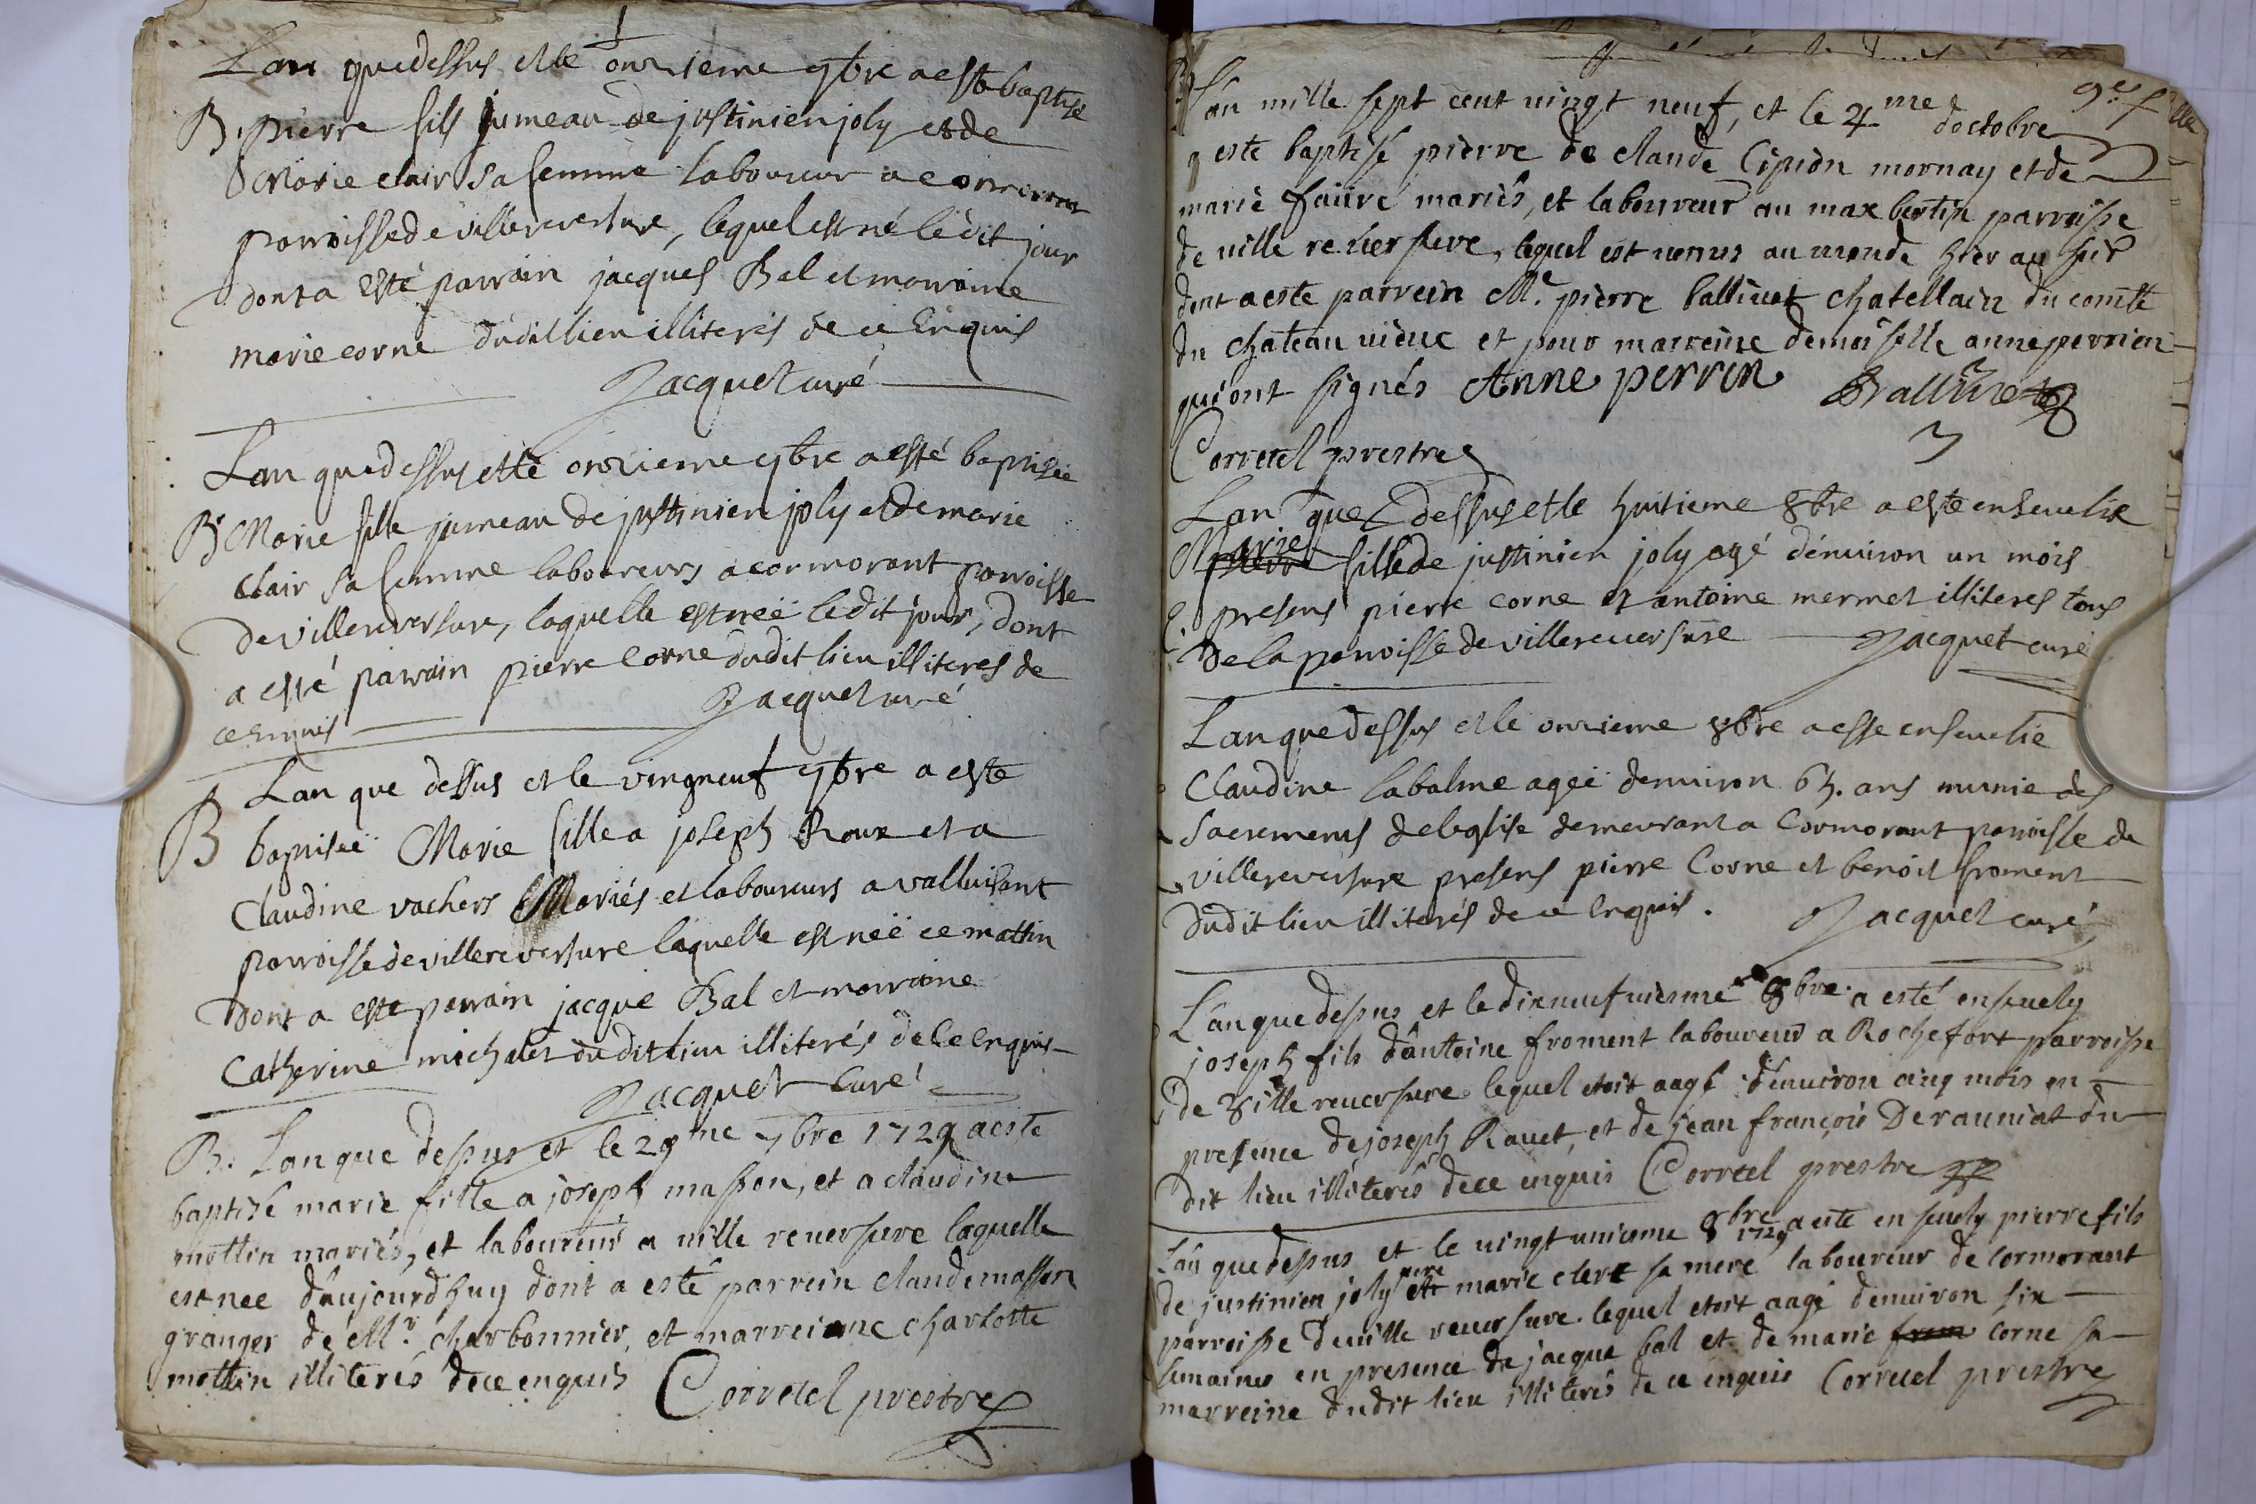 Lan que dessus et le onzieme 7bre a esté baptisé
B. pierre fils jumeau de justinien joly et de
Marie clair sa femme laboureur a cormorant
parroisse de villereversure, lequel est né ledit jour
dont a esté parrain jacques Bal et marraine
marie corne dudit lieu illiterés de ce Enquis
Jacquet curé
Lan que dessus et le onzieme 7bre a esté baptisée
B. Marie fille jumeau de justinien joly et de marie
Clair sa femme laboureurs a cormorant parroisse
de villereversure, laquelle est neé ledit jour, dont
a esté parrain pierre Corne dudit lieu illiteres de
ce Enquis Jacquet curé
Lan que dessus et le vingneuf 7bre a este
B baptiseé Marie fille a joseph Roux et a
Claudine vachers Mariés et laboureurs a valluisant
parroisse de villereversure laquelle est neé ce mattin
Dont a este parrain jacque Bal et marraine
Catherine michalet du dit lieu illiterés de Ce enquis
Jacquet Curé
B. Lan que dessus et le 29me 7bre 1729 a este
baptisé marie fille a joseph masson, et a claudine
mottin mariés, et laboureur a ville reversure laquelle
est nee daujourdhuy dont a esté parrein claude masson
granger de Mr. charbonnier, et marreinne charlotte
mottin illiterés de ce enquis Corretel prestre
9e f
Lan mille sept cent vingt neuf, et le 4me doctobre
a este baptisé pierre de claude Cipion mornay et de
marie faiivre mariés, et laboureur au max bertin parroisse
de ville reversure, lequel est venus au monde hier au soir
dont a este parrein Me. pierre ballivet chatellain du comte
du chateau vieux et pour marreine demoiselle anne perrien
qui ont signés Anne perrin Ballivet
Corretel prestre
Lan que dessus et le huitieme 8bre a este ensevelie
Marie fille de justinien joly agé denviron un mois
E. presens pierre corne et antoine mermet illiteres tous
De la parroisse de villereversure Jacquet curé
Lan que dessus et le onzieme 8bre a esse ensevelie
Claudine labalme ageé denviron 65. ans munie des
Sacrements de leglise demeurant a Cormorant parroisse de
villereversure presens pierre Corne et benoit froment
dudit lieu illiterés de ce enquis. Jacquet curé
Lan que dessus et le dixneufviesme 8bre a esté ensevely
joseph fils dantoine froment laboureur a Rochefort parroisse
de Ville reversure lequel etoit aagé denviron cinq mois en
presence de joseph Ravet, et de jean françois Deravniat du
dit lieu illiterés de ce enquis Corretel prestre
Lan que dessus et le vingt unieme 8bre 1729 a este ensevely pierre fils
de justinien joly pere et marie clert sa mere laboureur de cormorant
parroisse de ville reversure lequel etoit aagé denviron six
semaines en presence de jacque bal et de marie corne sa
marreine du dit lieu illiterés de ce enquis Corretel prestre